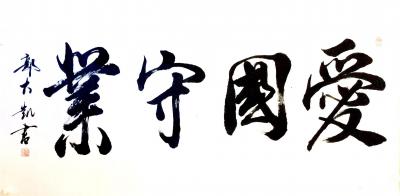 愛國守業
郭大凱書